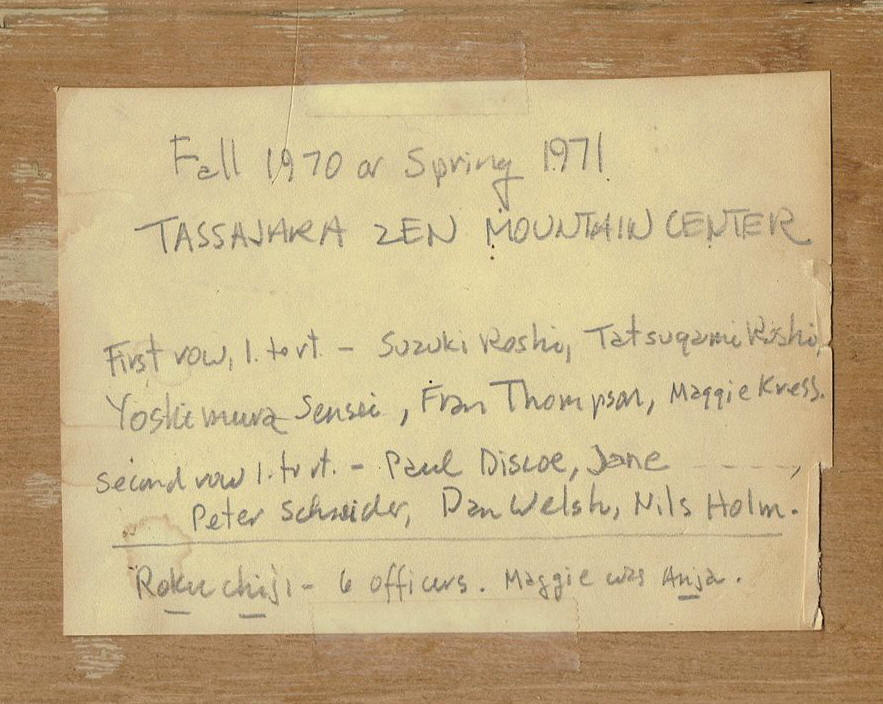 Fall 1970 or Spring 1971
TASSAJARA ZEN MOUNTAIN CENTER
First row, l. to rt. - Suzuki Roshi, Tatsugami Roshi,
Yoshimura Sensei, Fran Thompson, Maggie Kress.
Second row l. to rt. - Paul Discoe, Jane - - - - ,
Peter Schneider, Dan Welsh, Nils Holm.
Roku chiji - 6 officers. Maggie was Anja.